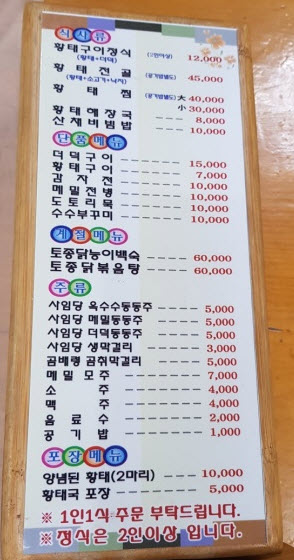 식사류
황태구이정식 (2인이상) 12,000
(황태+더덕)
황태전골 (공기밥별도) 45,000
(황태+소고기+낙지)
황태찜 (공기밥별도) 大 40,000
小 30,000
황태해장국 --- 8,000
산채비빔밥 --- 10,000
단품메뉴
더덕구이 ----- 15,000
황태구이 ----- 7,000
감자전 ----- 10,000
메밀전병 ----- 10,000
도토리묵 ----- 10,000
수수부꾸미 ----- 10,000
계절메뉴
토종닭능이백숙 --- 60,000
토종닭볶음탕 --- 60,000
주류
사임당 옥수수동동주 -- 5,000
사임당 메밀동동주 --- 5,000
사임당 더덕동동주 --- 5,000
사임당 생막걸리 ---- 3,000
곰배령 곰취막걸리 --- 5,000
메밀 모주 ---- 7,000
소주 ---- 4,000
맥주 ---- 4,000
음료수 ---- 2,000
공기밥 ---- 1,000
포장메뉴
양념된 황태(2마리) --- 10,000
황태국 포장 ---- 5,000
※ 1인1식 주문 부탁드립니다.
※정식은 2인이상 입니다.